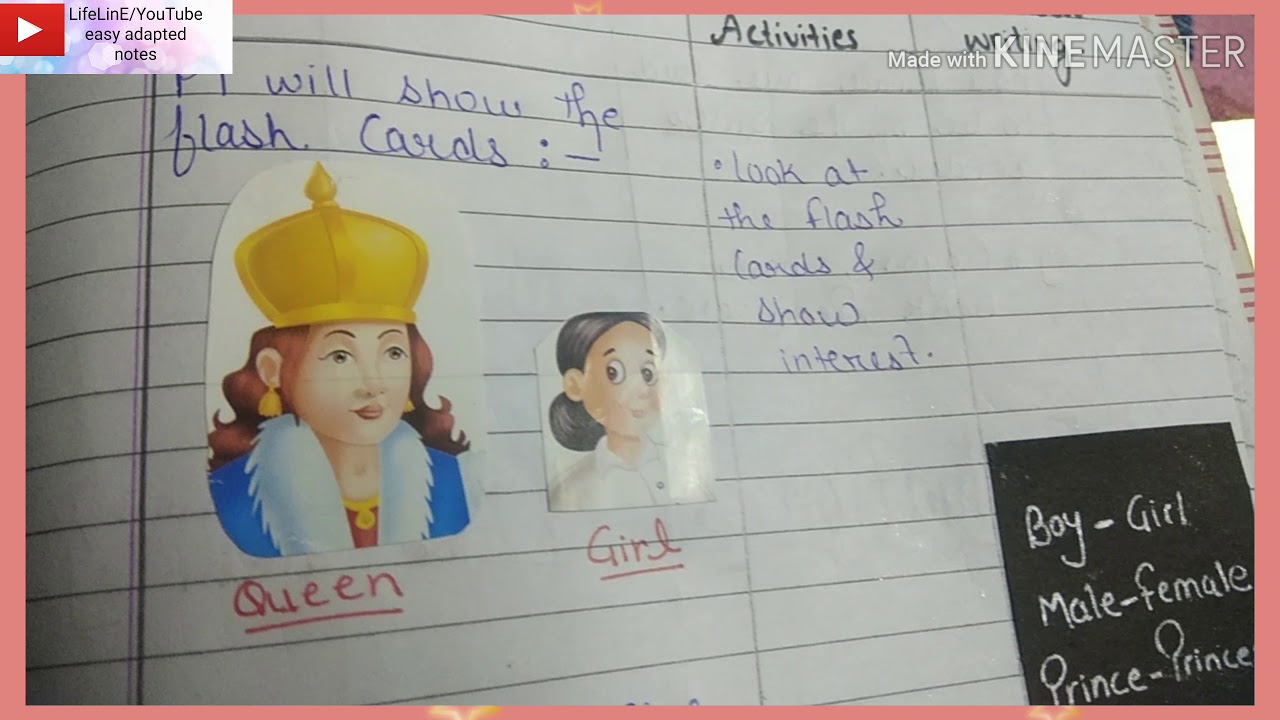 LifeLinE/YouTube
easy adapted
notes
Activities
writing
Made with KINEMASTER
PT will show the
flash Cards :-
• look at
the flash
Cards &
show
interest.
Queen
Girl
Boy - Girl
Male - female
Prince - Prince